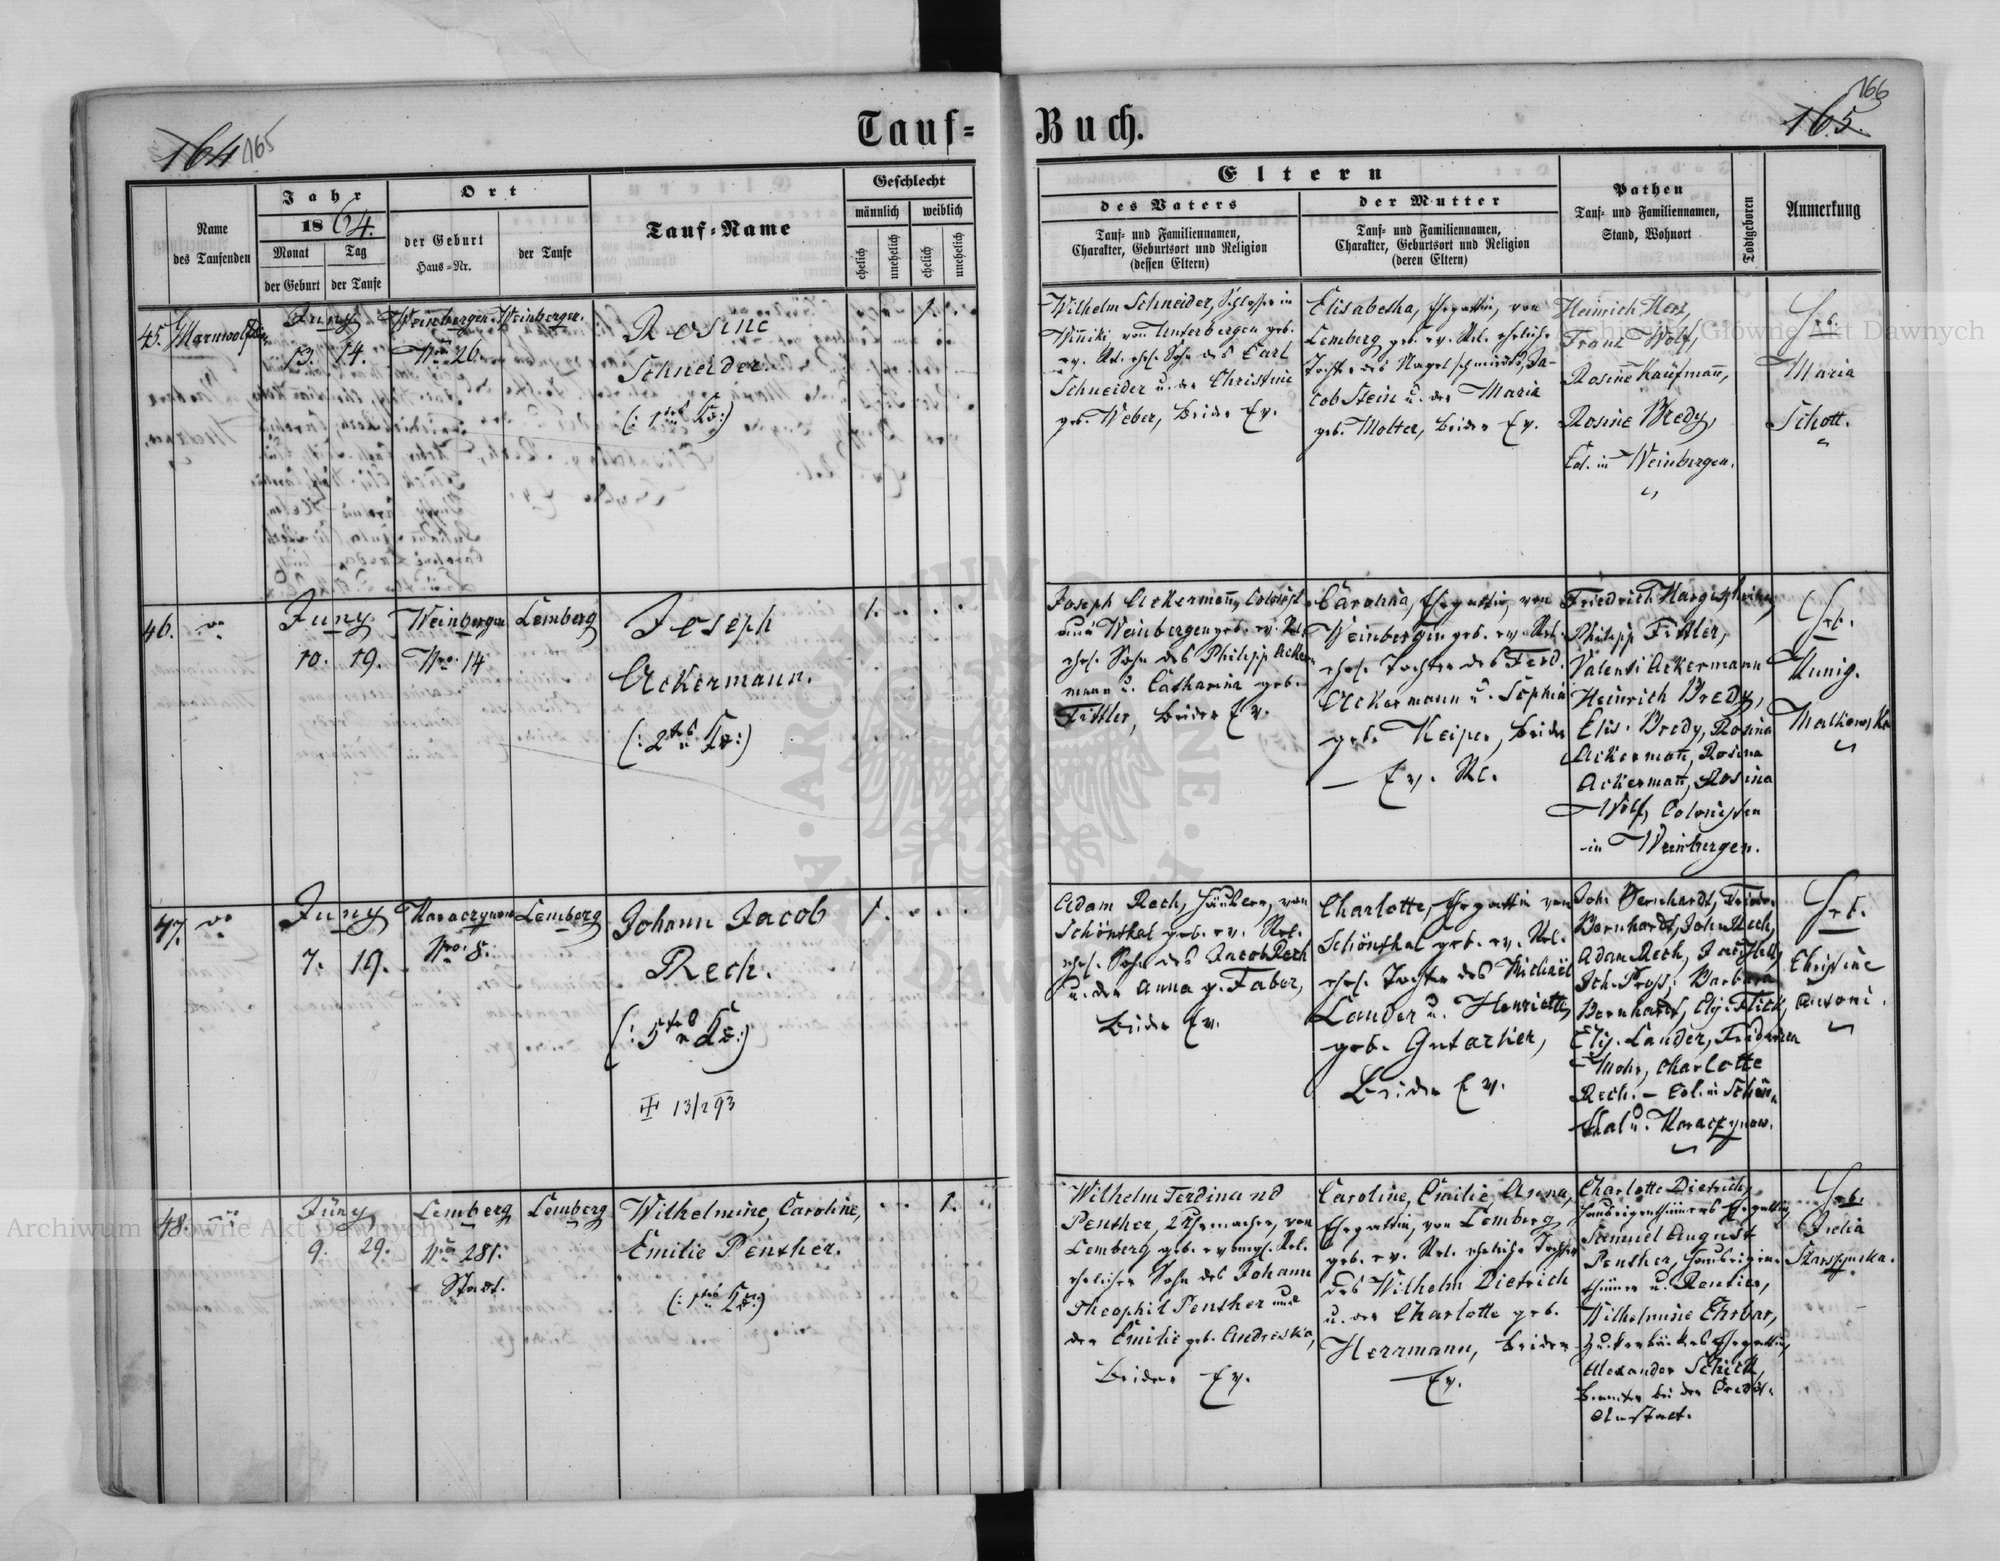 164 165
Tauf=
Buch.
166
165.
Name
des Taufenden
Jahr
1864.
Monat
Tag
der Geburt
der Taufe
Ort
der Geburt
Haus=Nr.
der Taufe
Tauf=Name
Geschlecht
männlich
weiblich
ehelich
unehelich
ehelich
unehelich
Eltern
des Vaters
Tauf= und Familiennamen,
Charakter, Geburtsort und Religion
(dessen Eltern)
der Mutter
Tauf= und Familiennamen,
Charakter, Geburtsort und Religion
(deren Eltern)
Pathen
Tauf= und Familiennamen,
Stand, Wohnort
Todtgeboren
Anmerkung
45.
Juny
13. 14.
Weinbergen
Nro 26.
Weinbergen.
Rosine
Schneider.
(: 1tes Kd :)
1.
Wilhelm Schneider, Schlosser in
Winiki von Unterbergen geb.
ev. Rel. ehel. Sohn des Carl
Schneider u. der Christine
geb. Weber, beide Ev.
Elisabetha, Ehegattin, von
Lemberg geb. ev. Rel. eheliche
Tochter des Nagelschmieds Ja-
cob Stein u. der Maria
geb. Molter, beide Ev.
Heinrich Herz,
Franz Wolf,
Rosine Kaufmann,
Rosine Bredy,
Col. in Weinbergen.
Heb.
Maria
Schott.
46.
Juny
10. 19.
Weinbergen
Nro 14
Lemberg
Joseph
Ackermann.
(: 2tes Kd :)
1.
Joseph Ackermann, Colonist
aus Weinbergen geb. ev. Rel.
ehel. Sohn des Philipp Acker-
mann u. Catharina geb.
Fittler, beide Ev.
Carolina, Ehegattin, von
Weinbergen geb. ev. Rel.
ehel. Tochter des Ferd.
Ackermann u. Sophia
geb. Keiper, beide
Ev. Rl.
Friedrich
Philipp Fittler,
Valenti Ackermann
Heinrich Bredy,
Elis. Bredy, Rosina
Ackermann, Rosina
Ackermann, Rosina
Wolf, Colonisten
in Weinbergen.
Heb.
Kunig.
47.
Juny
7. 19.
Karaczynow
Nro. 8.
Lemberg
Johann Jacob
Rech.
(: 5tes Kd :)
III 13/293
1.
Adam Rech, Häusler, von
Schönthal geb. ev. Rel.
ehel. Sohn des Jacob Rech
u. der Anna g. Faber,
beide Ev.
Charlotte, Ehegattin von
Schönthal geb. ev. Rel.
ehel. Tochter des Michael
Lander u. Henriette
geb. Gutacher,
beide Ev.
Joh. Bernhardt, Friedr.
Bernhardt, Joh. Rech,
Adam Rech,
Barbara
Bernhardt, Elis. Flick,
Elis. Lander,
Mohr, Charlotte
Rech. — Col. in Schön-
thal u. Karaczynow.
Heb.
Christine
Antoni.
48.
Juny
9. 29.
Lemberg
Nro 281.
Stadt.
Lemberg
Wilhelmine, Caroline,
Emilie Penther.
(: 1tes Kd :)
1.
Wilhelm Ferdinand
Penther, Uhrmacher, von
Lemberg geb. evangl. Rel.
ehelicher Sohn des Johann
Theophil Penther und
der Emilie geb. Andreska,
beide Ev.
Caroline, Emilie Anna,
Ehegattin, von Lemberg
geb. ev. Rel. eheliche Tochter
des Wilhelm Dietrich
u. der Charlotte geb.
Herrmann, beide
Ev.
Charlotte Dietrich,
Hauseigenthümers Ehegattin,
Samuel August
Penther, Hauseigen-
thümer u. Rentier,
Wilhelmine Ehrbar,
Zuckerbäckers Ehegattin,
Alexander Schick,
Beamter bei der Credit-
Anstalt.
Heb.
Julia
Archiwum Główne Akt Dawnych
Archiwum Główne Akt Dawnych
ARCHIWUM GŁÓWNE AKT DAWNYCH